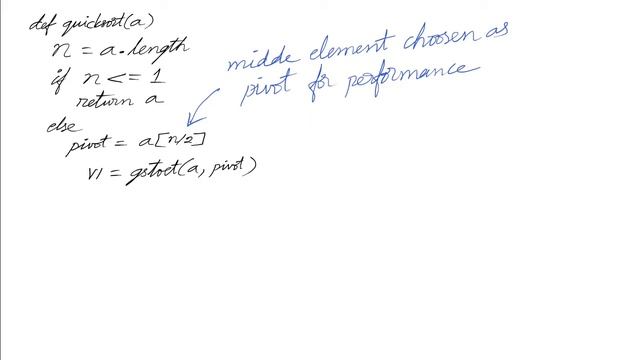 def quicksort(a)
n = a.length
if n <= 1
return a
else
pivot = a[n/2]
v1 = (a, pivot)
midde element choosen as
pivot for performance